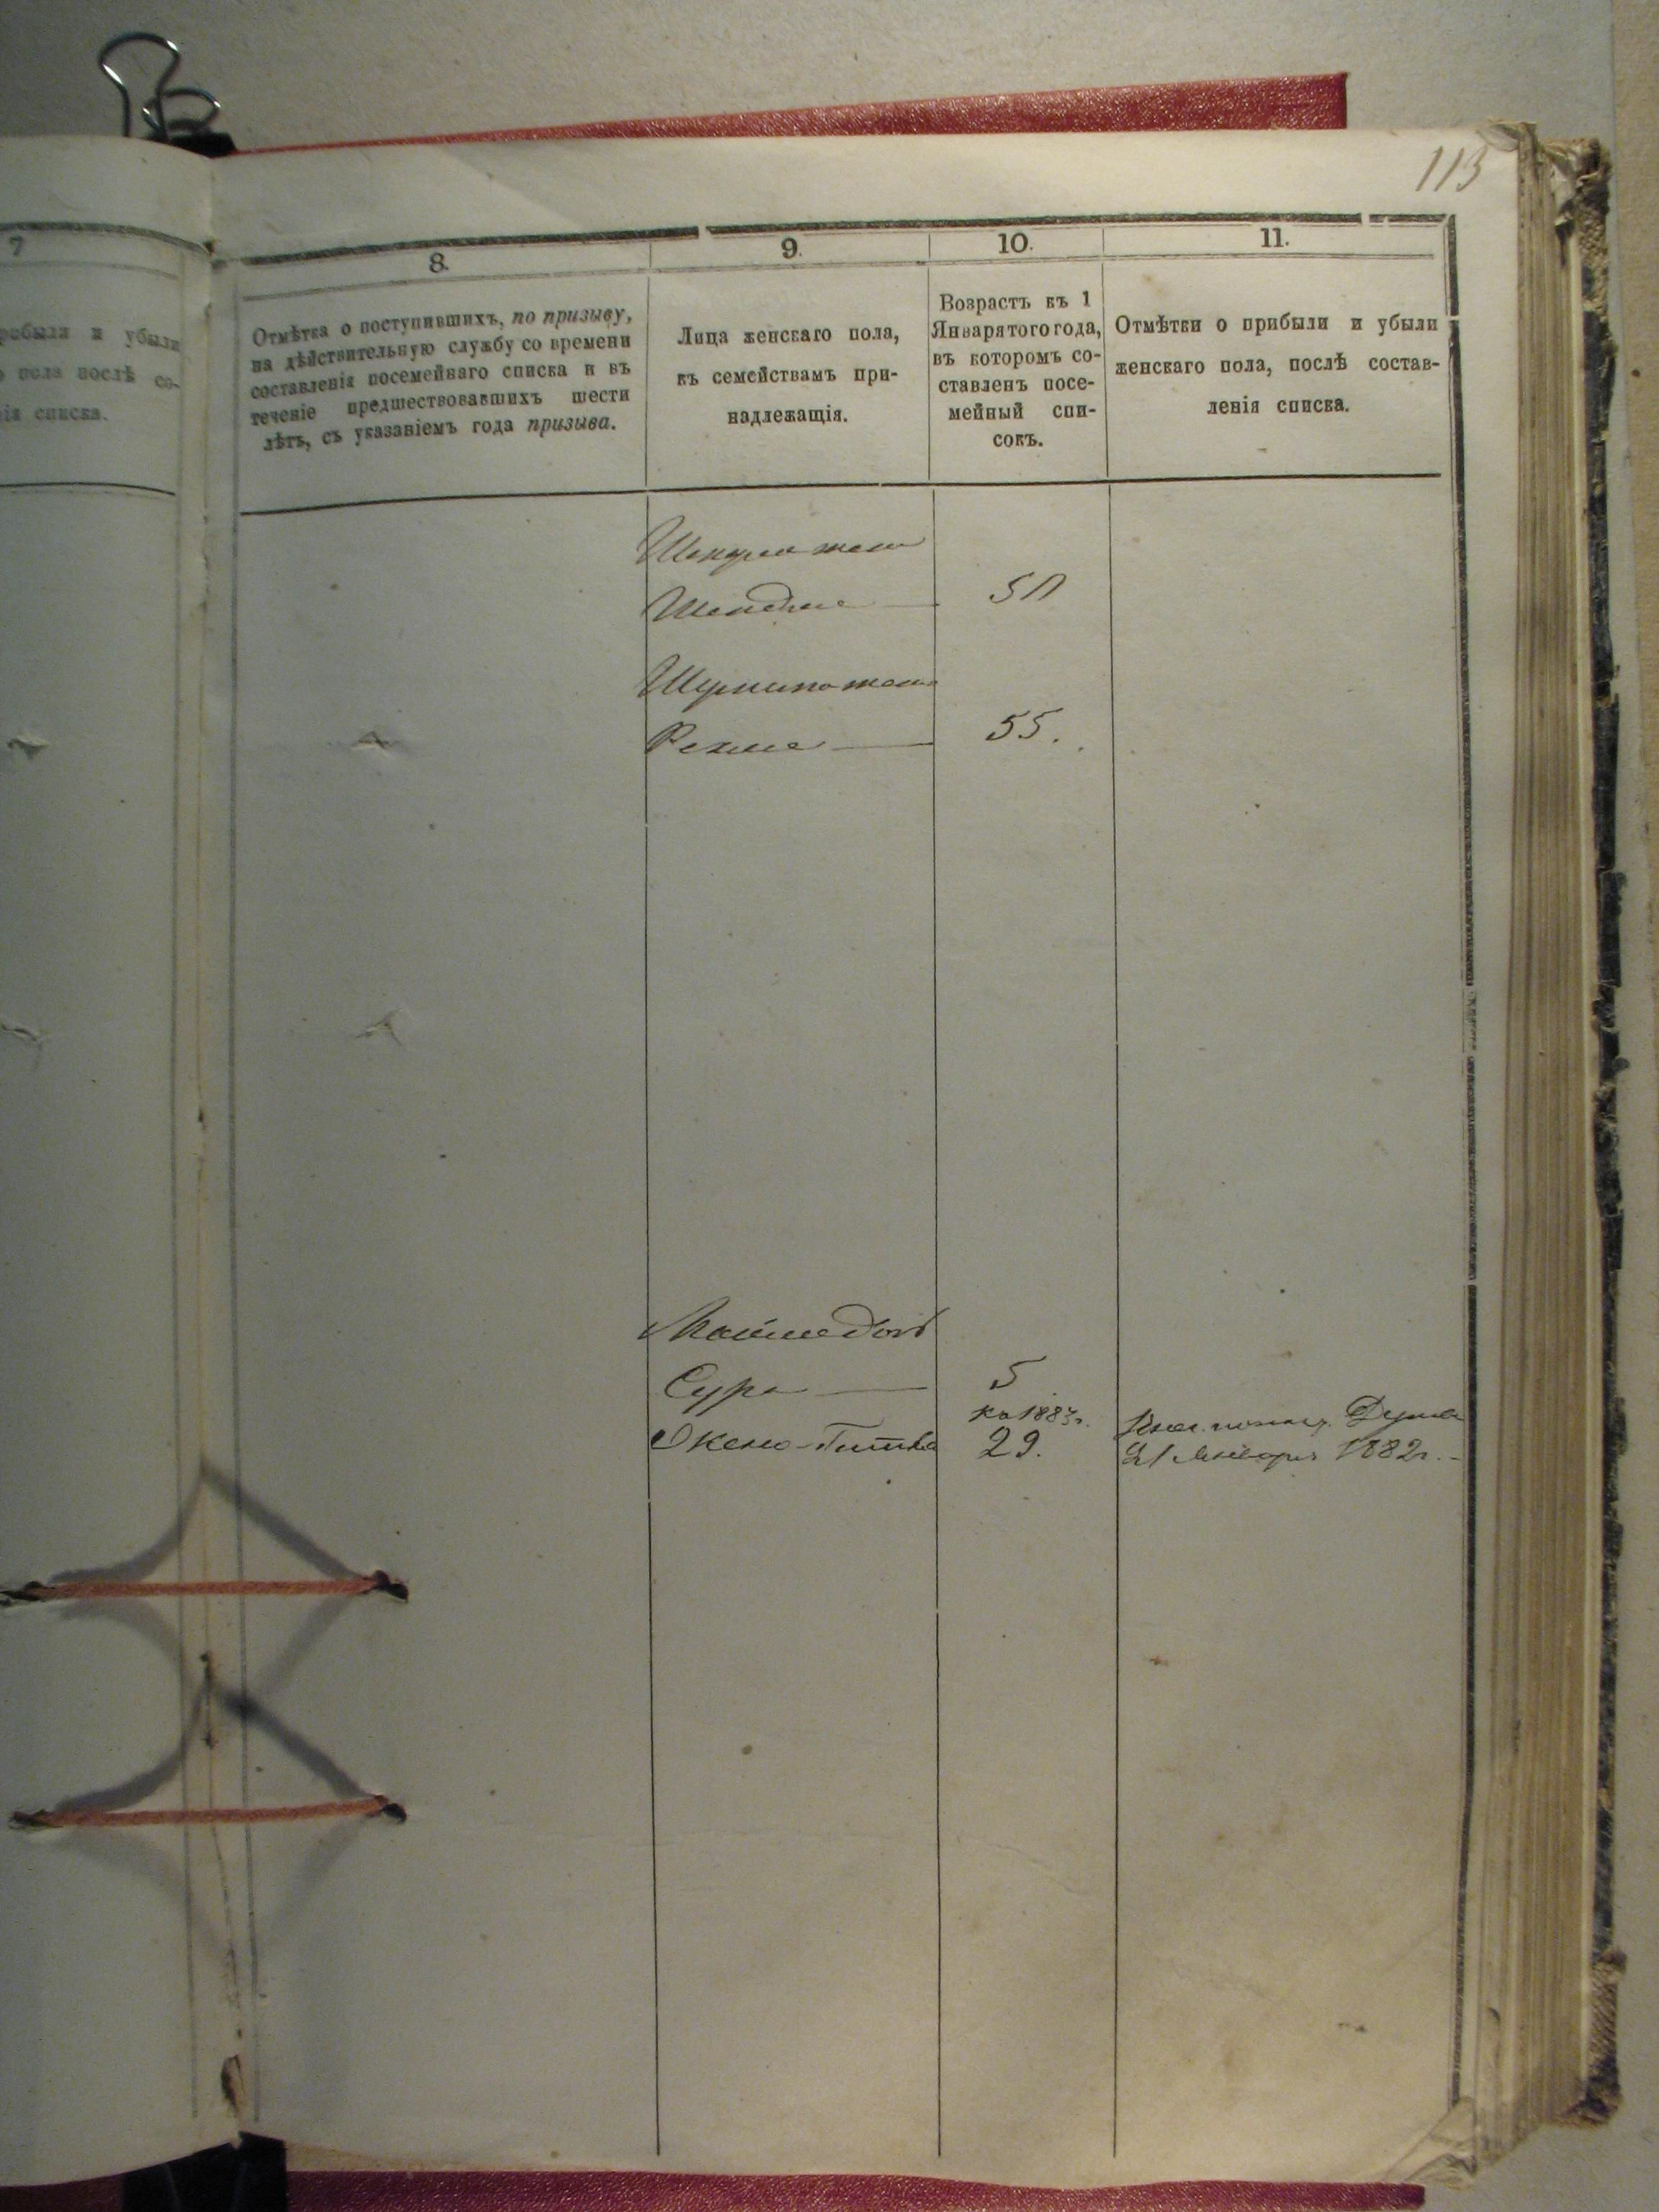 113
7
8.
9.
10.
11.
прибыли и убыли
пола послѣ со-
нія списка.
Отмѣтка о поступившихъ, по призыву,
на дѣйствительную службу со времени
составленія посемейнаго списка и въ
теченіе предшествовавшихъ шести
лѣтъ, съ указаніемъ года призыва.
Лица женскаго пола,
къ семействамъ при-
надлежащія.
Возрастъ къ 1
Января того года,
въ которомъ со-
ставленъ посе-
мейный спи-
сокъ.
Отмѣтки о прибыли и убыли
женскаго пола, послѣ состав-
ленія списка.
жена
50
жена
55.
дочь
Сура
5
къ 1883 г.
29.
Думы
21 Января 1882 г.